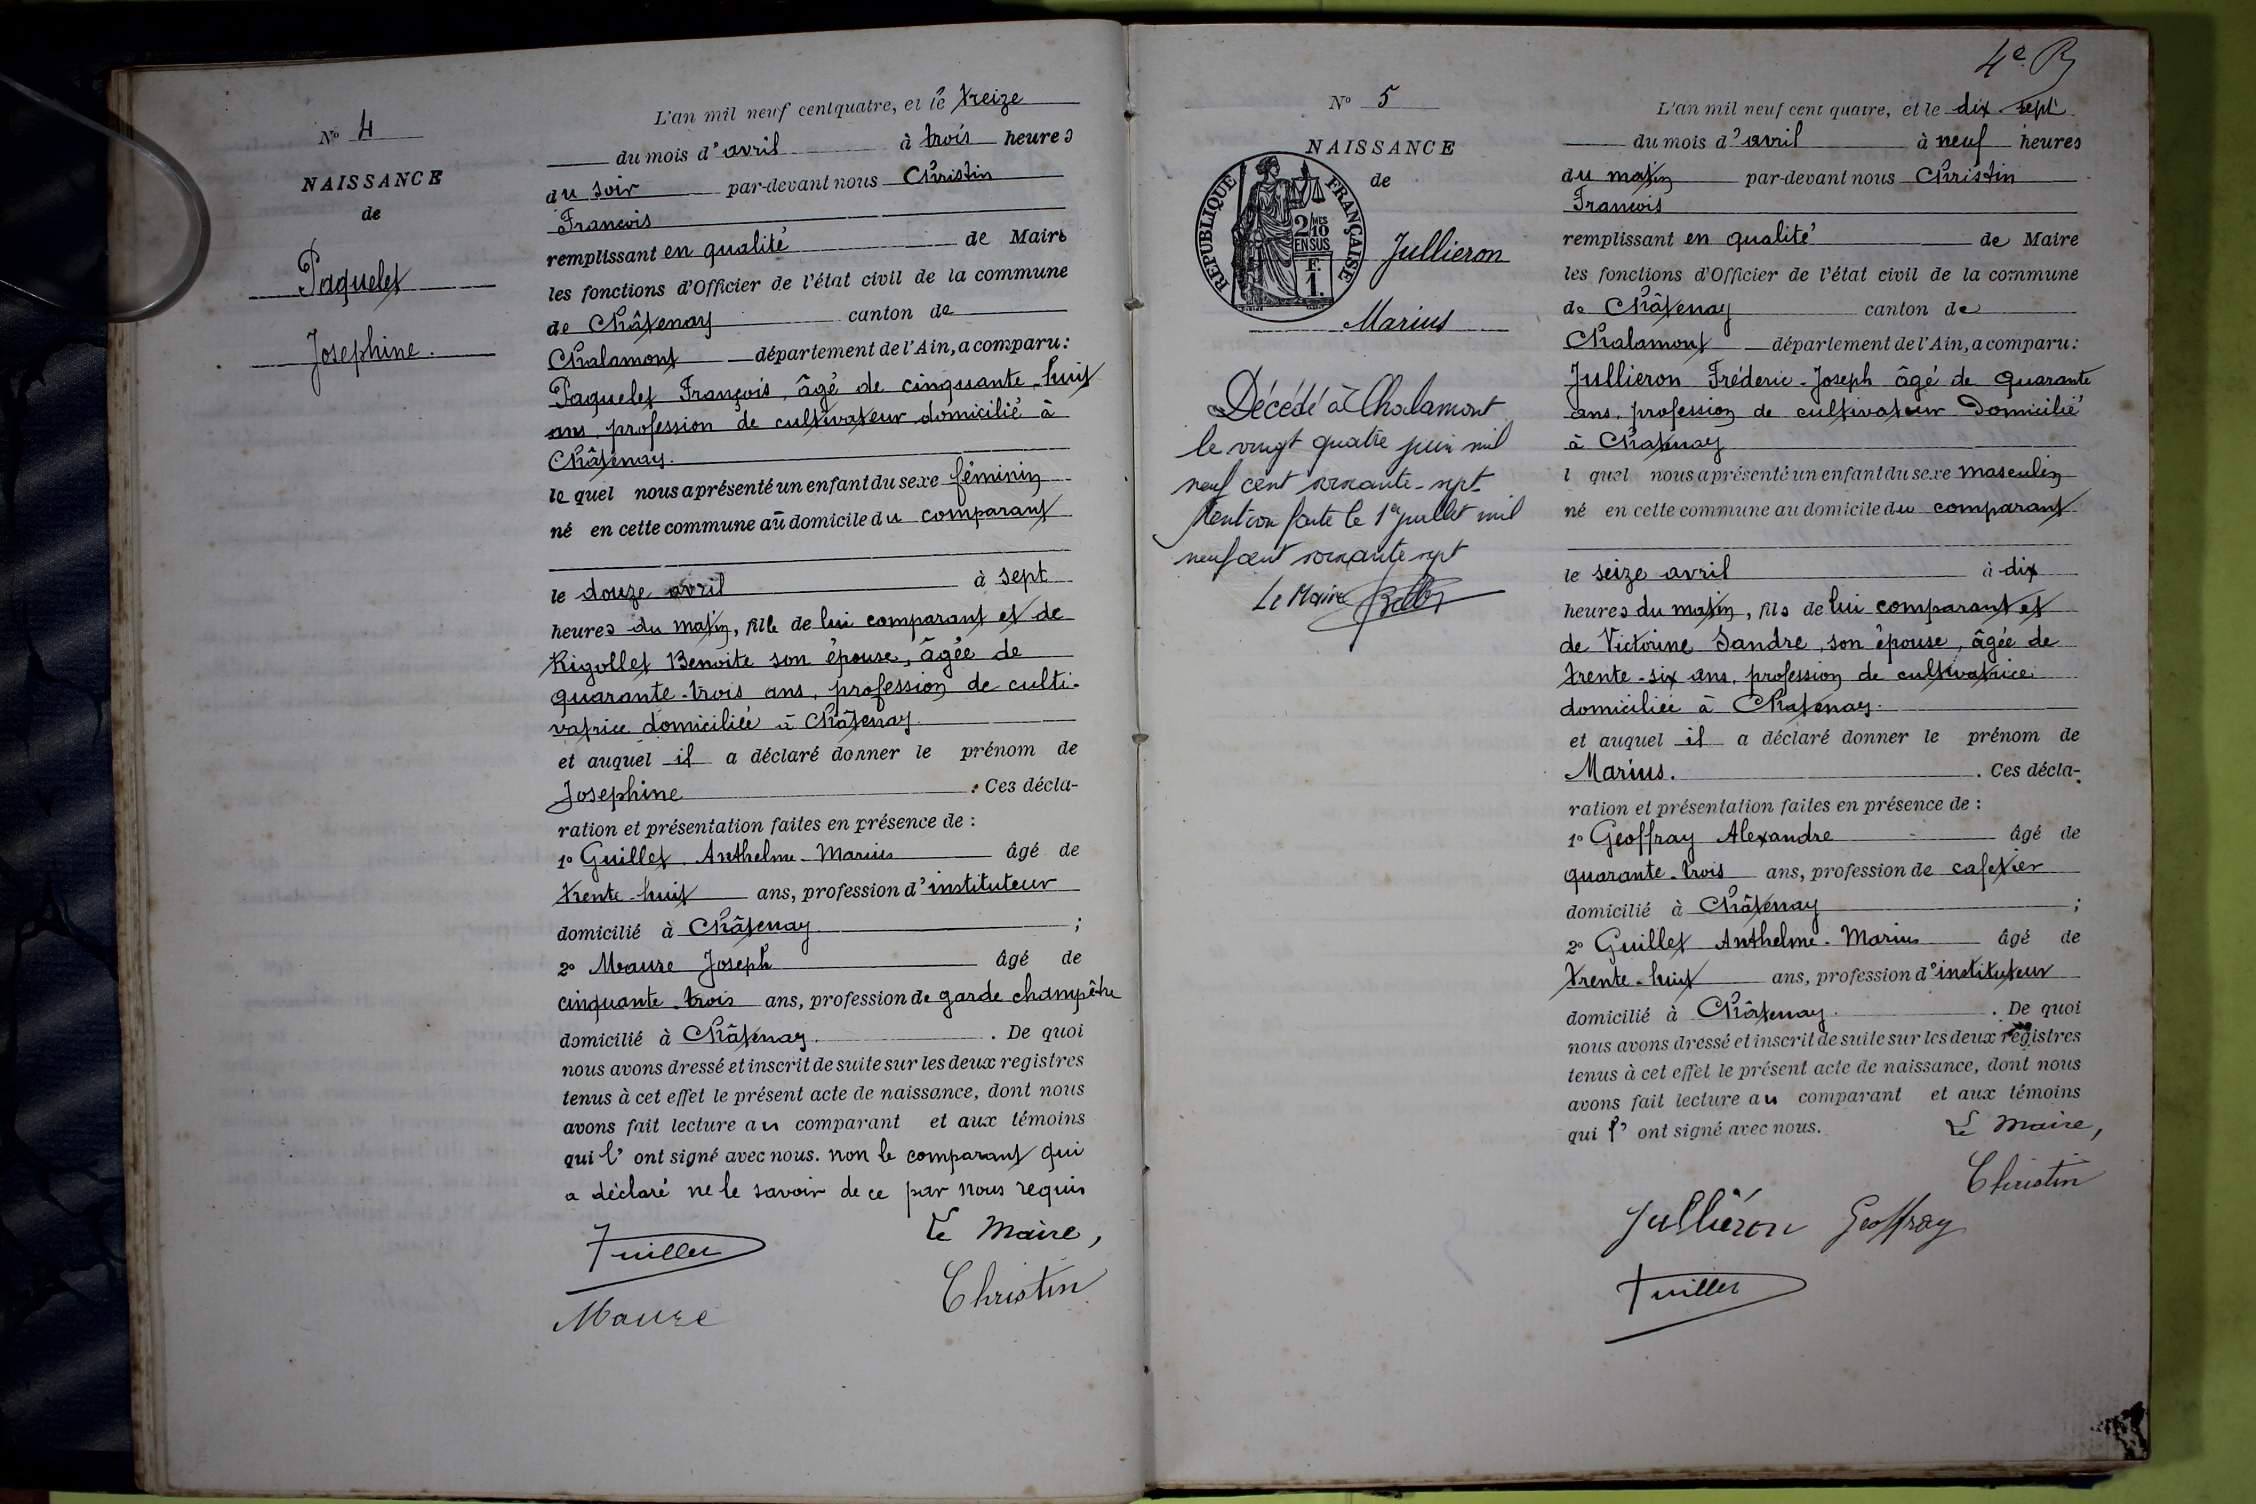 N° 4
NAISSANCE
de
Paquelet
Josephine.
L'an mil neuf cent quatre, et le treize
du mois d'avril à trois heures
du soir par-devant nous Christin
François
remplissant en qualité de Maire
les fonctions d'Officier de l'état civil de la commune
de Châtenay canton de
Chalamont département de l'Ain, a comparu :
Paquelet François, âgé de cinquante-huit
ans, profession de cultivateur domicilié à
Châtenay.
lequel nous a présenté un enfant du sexe féminin
né en cette commune au domicile du comparant
le douze avril à sept
heures du matin, fille de lui comparant et de
Rigollet Benoite son épouse, âgée de
quarante-trois ans, profession de culti-
vatrice domiciliée à Châtenay.
et auquel il a déclaré donner le prénom de
Josephine . Ces décla-
ration et présentation faites en présence de :
1° Guillet Anthelme-Marius âgé de
trente-huit ans, profession d'instituteur
domicilié à Châtenay ;
2° Maure Joseph âgé de
cinquante-trois ans, profession de garde champêtre
domicilié à Châtenay. . De quoi
nous avons dressé et inscrit de suite sur les deux registres
tenus à cet effet le présent acte de naissance, dont nous
avons fait lecture au comparant et aux témoins
qui l'ont signé avec nous. non le comparant qui
a déclaré ne le savoir de ce par nous requis
Le Maire,
Guillet
Christin
Maure
4e
N° 5
NAISSANCE
de
RÉPUBLIQUE FRANÇAISE
2/10 MES
EN SUS
F.
1.
Jullieron
Marius
Décédé à Chalamont
le vingt quatre juin mil
neuf cent soixante-sept
Mention faite le 1er juillet mil
neuf cent soixante sept
Le Maire
L'an mil neuf cent quatre, et le dix-sept
du mois d'avril à neuf heures
du matin par-devant nous Christin
François
remplissant en qualité de Maire
les fonctions d'Officier de l'état civil de la commune
de Châtenay canton de
Chalamont département de l'Ain, a comparu :
Jullieron Fréderic-Joseph âgé de quarante
ans, profession de cultivateur Domicilié
à Chatenay
l quel nous a présenté un enfant du sexe masculin
né en cette commune au domicile du comparant
le seize avril à dix
heures du matin, fils de lui comparant et
de Victorine Sandre, son épouse, âgée de
trente-six ans, profession de cultivatrice
domiciliée à Chatenay.
et auquel il a déclaré donner le prénom de
Marius. . Ces décla-
ration et présentation faites en présence de :
1° Geoffray Alexandre âgé de
quarante-trois ans, profession de cafetier
domicilié à Châtenay ;
2° Guillet Anthelme-Marius âgé de
trente-huit ans, profession d'instituteur
domicilié à Châtenay. . De quoi
nous avons dressé et inscrit de suite sur les deux registres
tenus à cet effet le présent acte de naissance, dont nous
avons fait lecture au comparant et aux témoins
qui l'ont signé avec nous.
Le Maire,
Christin
Julliéron Geoffray
Guillet